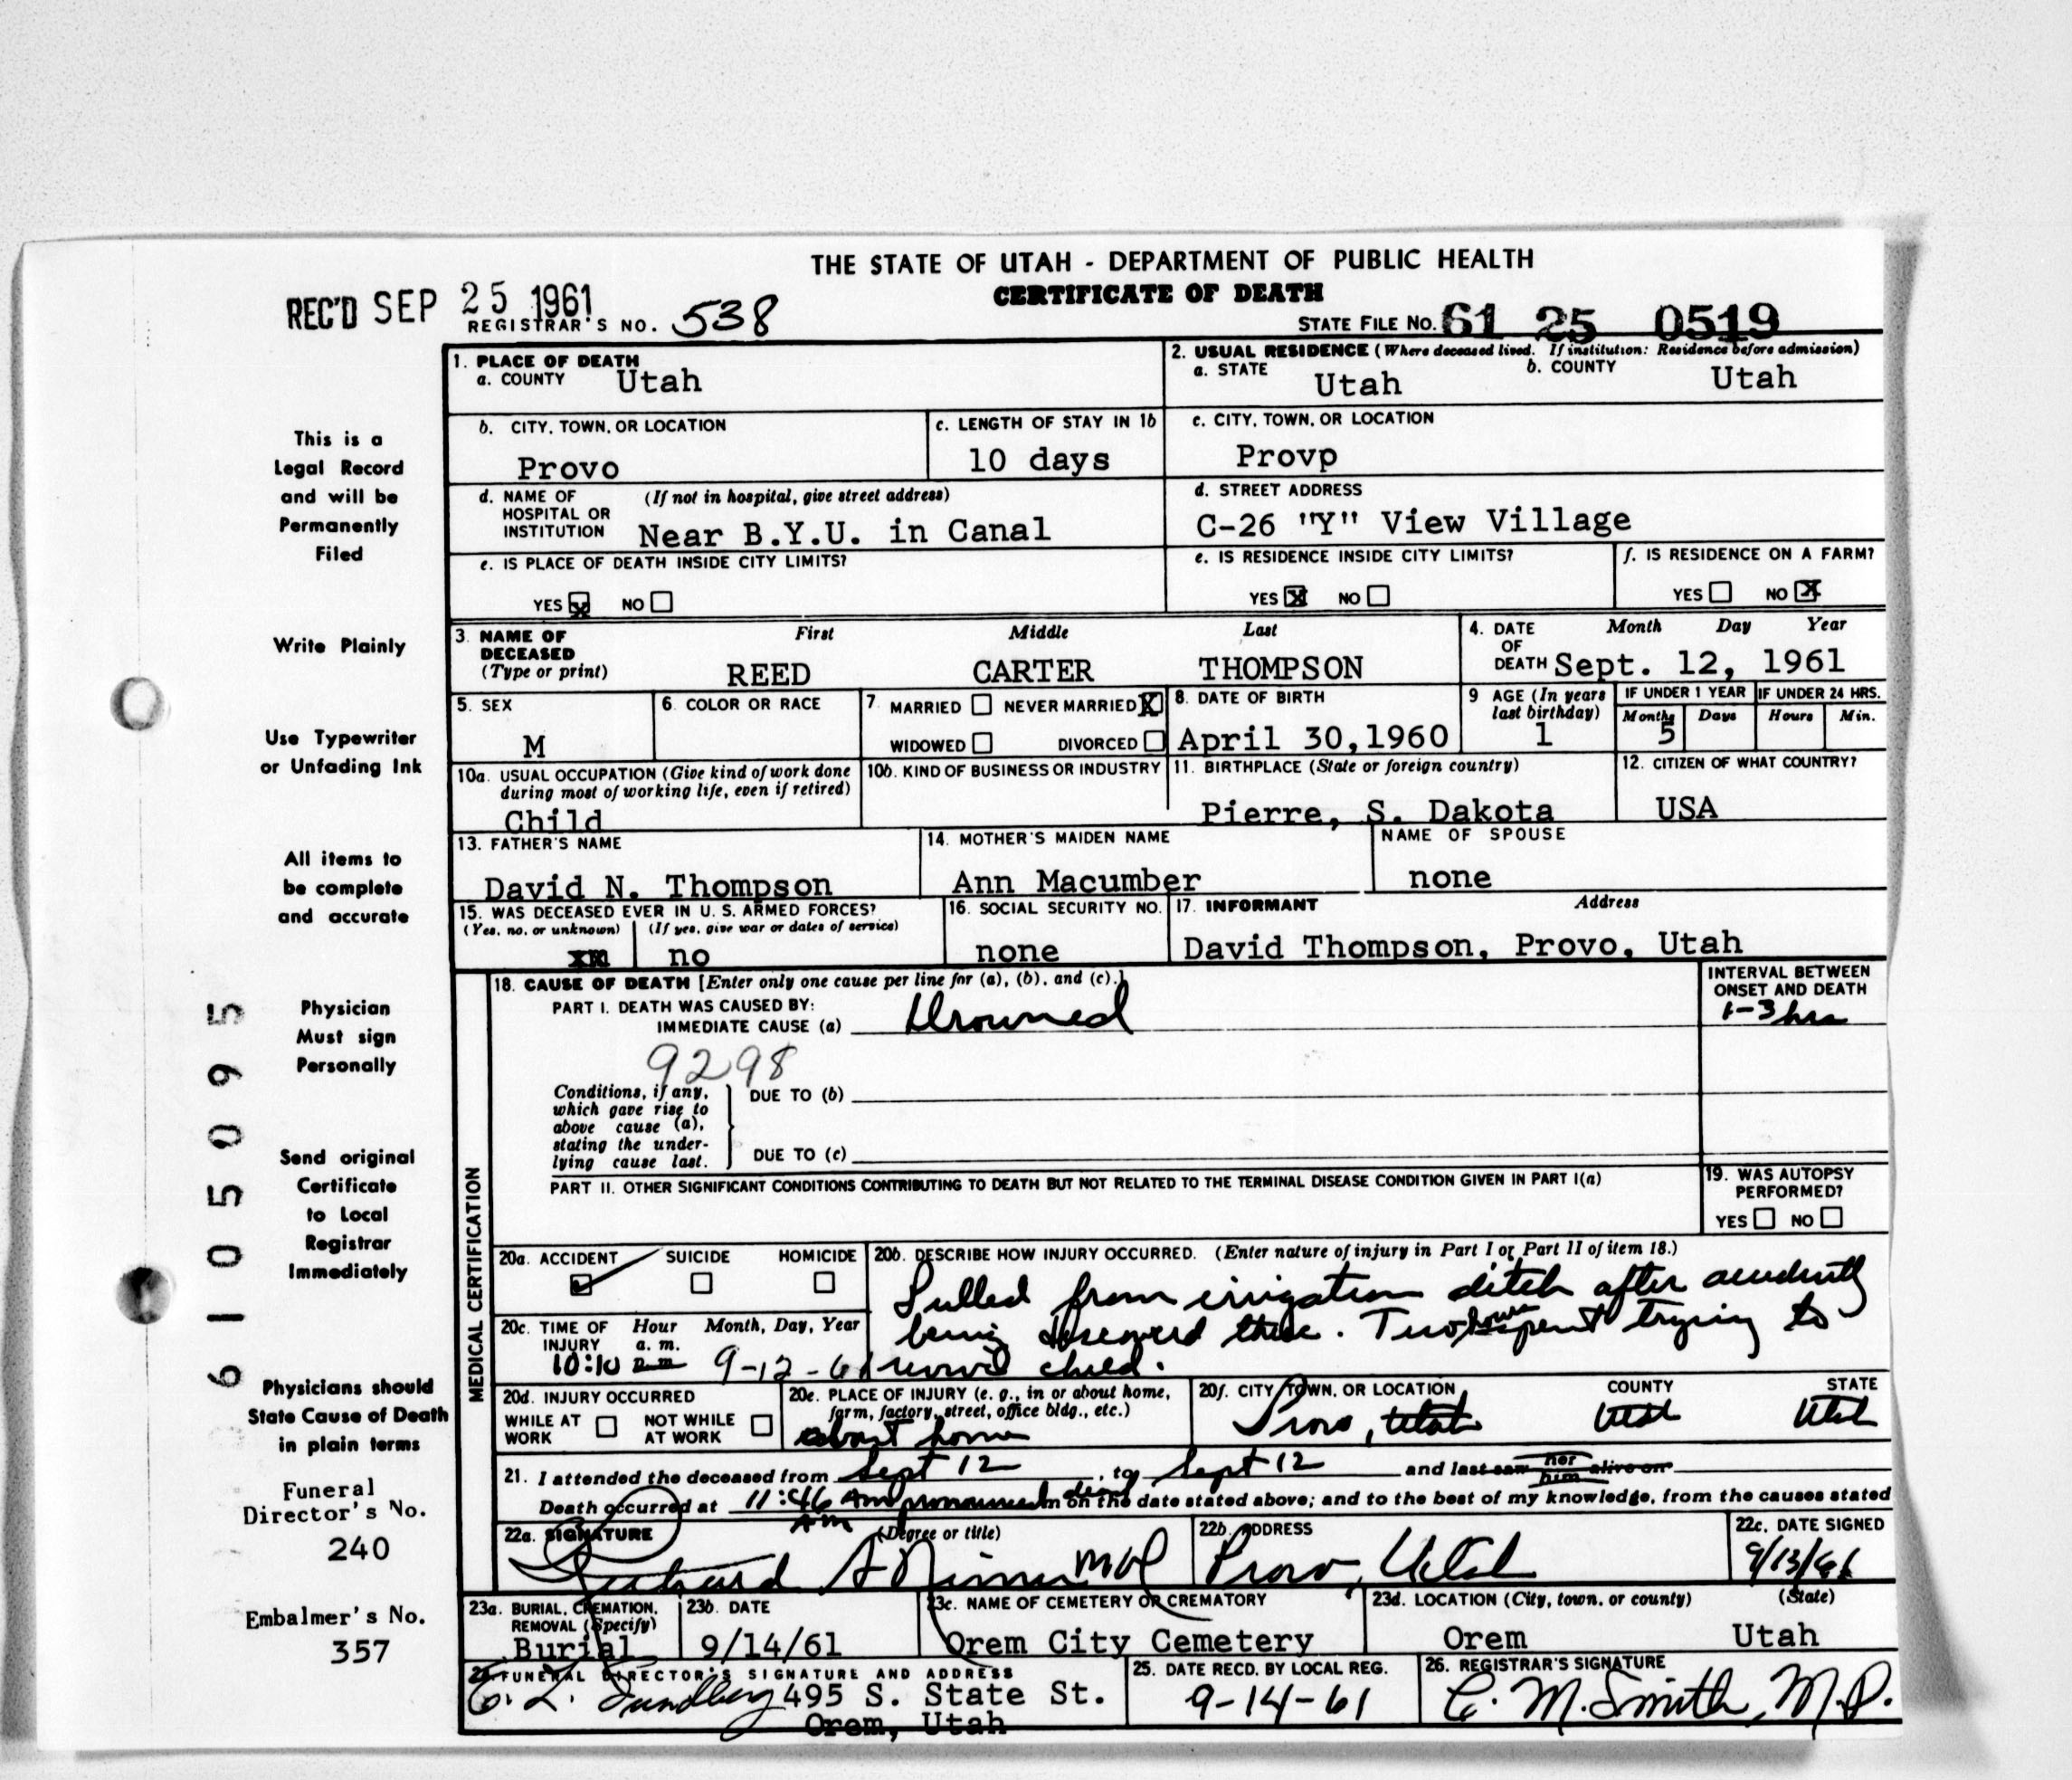 THE STATE OF UTAH - DEPARTMENT OF PUBLIC HEALTH
CERTIFICATE OF DEATH
REC'D SEP 25 1961
REGISTRAR'S NO. 538
STATE FILE NO. 61 25 0519
This is a
Legal Record
and will be
Permanently
Filed
Write Plainly
Use Typewriter
or Unfading Ink
All items to
be complete
and accurate
Physician
Must sign
Personally
Send original
Certificate
to Local
Registrar
Immediately
Physicians should
State Cause of Death
in plain terms
Funeral
Director's No.
240
Embalmer's No.
357
6 1 0 5 0 9 5
1. PLACE OF DEATH
a. COUNTY Utah
2. USUAL RESIDENCE (Where deceased lived. If institution: Residence before admission)
a. STATE Utah b. COUNTY Utah
b. CITY, TOWN, OR LOCATION
Provo
c. LENGTH OF STAY IN 1b
10 days
c. CITY, TOWN, OR LOCATION
Provp
d. NAME OF HOSPITAL OR INSTITUTION (If not in hospital, give street address)
Near B.Y.U. in Canal
d. STREET ADDRESS
C-26 "Y" View Village
e. IS PLACE OF DEATH INSIDE CITY LIMITS?
YES X NO
e. IS RESIDENCE INSIDE CITY LIMITS?
YES X NO
f. IS RESIDENCE ON A FARM?
YES NO X
3. NAME OF DECEASED (Type or print)
First Middle Last
REED CARTER THOMPSON
4. DATE OF DEATH Month Day Year
Sept. 12, 1961
5. SEX
M
6. COLOR OR RACE
7. MARRIED NEVER MARRIED X
WIDOWED DIVORCED
8. DATE OF BIRTH
April 30,1960
9 AGE (In years last birthday)
1
IF UNDER 1 YEAR
Months Days
5
IF UNDER 24 HRS.
Hours Min.
10a. USUAL OCCUPATION (Give kind of work done during most of working life, even if retired)
Child
10b. KIND OF BUSINESS OR INDUSTRY
11. BIRTHPLACE (State or foreign country)
Pierre, S. Dakota
12. CITIZEN OF WHAT COUNTRY?
USA
13. FATHER'S NAME
David N. Thompson
14. MOTHER'S MAIDEN NAME
Ann Macumber
NAME OF SPOUSE
none
15. WAS DECEASED EVER IN U. S. ARMED FORCES?
(Yes, no, or unknown) (If yes, give war or dates of service)
no
16. SOCIAL SECURITY NO.
none
17. INFORMANT Address
David Thompson, Provo, Utah
MEDICAL CERTIFICATION
18. CAUSE OF DEATH [Enter only one cause per line for (a), (b), and (c).]
PART I. DEATH WAS CAUSED BY:
IMMEDIATE CAUSE (a) Drowned
INTERVAL BETWEEN ONSET AND DEATH
1-3 hrs
9298
Conditions, if any, which gave rise to above cause (a), stating the underlying cause last.
DUE TO (b)
DUE TO (c)
PART II. OTHER SIGNIFICANT CONDITIONS CONTRIBUTING TO DEATH BUT NOT RELATED TO THE TERMINAL DISEASE CONDITION GIVEN IN PART I(a)
19. WAS AUTOPSY PERFORMED?
YES NO
20a. ACCIDENT SUICIDE HOMICIDE
20b. DESCRIBE HOW INJURY OCCURRED. (Enter nature of injury in Part I or Part II of item 18.)
Pulled from irrigation ditch after accidently
being there. Two hours spent trying to
revive child.
20c. TIME OF INJURY Hour Month, Day, Year
10:10 a. m. p. m. 9-12-61
20d. INJURY OCCURRED
WHILE AT WORK NOT WHILE AT WORK
20e. PLACE OF INJURY (e. g., in or about home, farm, factory, street, office bldg., etc.)
about home
20f. CITY, TOWN, OR LOCATION COUNTY STATE
Provo, Utah Utah Utah
21. I attended the deceased from Sept 12, to Sept 12 and last saw her him alive on
Death occurred at 11:46 AM pronounced dead m on the date stated above; and to the best of my knowledge, from the causes stated
AM
22a. SIGNATURE (Degree or title)
MD
22b. ADDRESS
Provo, Utah
22c. DATE SIGNED
9/13/61
23a. BURIAL, CREMATION, REMOVAL (Specify)
Burial
23b. DATE
9/14/61
23c. NAME OF CEMETERY OR CREMATORY
Orem City Cemetery
23d. LOCATION (City, town, or county) (State)
Orem Utah
24. FUNERAL DIRECTOR'S SIGNATURE AND ADDRESS
Sundberg 495 S. State St.
Orem, Utah
25. DATE RECD. BY LOCAL REG.
9-14-61
26. REGISTRAR'S SIGNATURE
C. M. Smith, M.D.